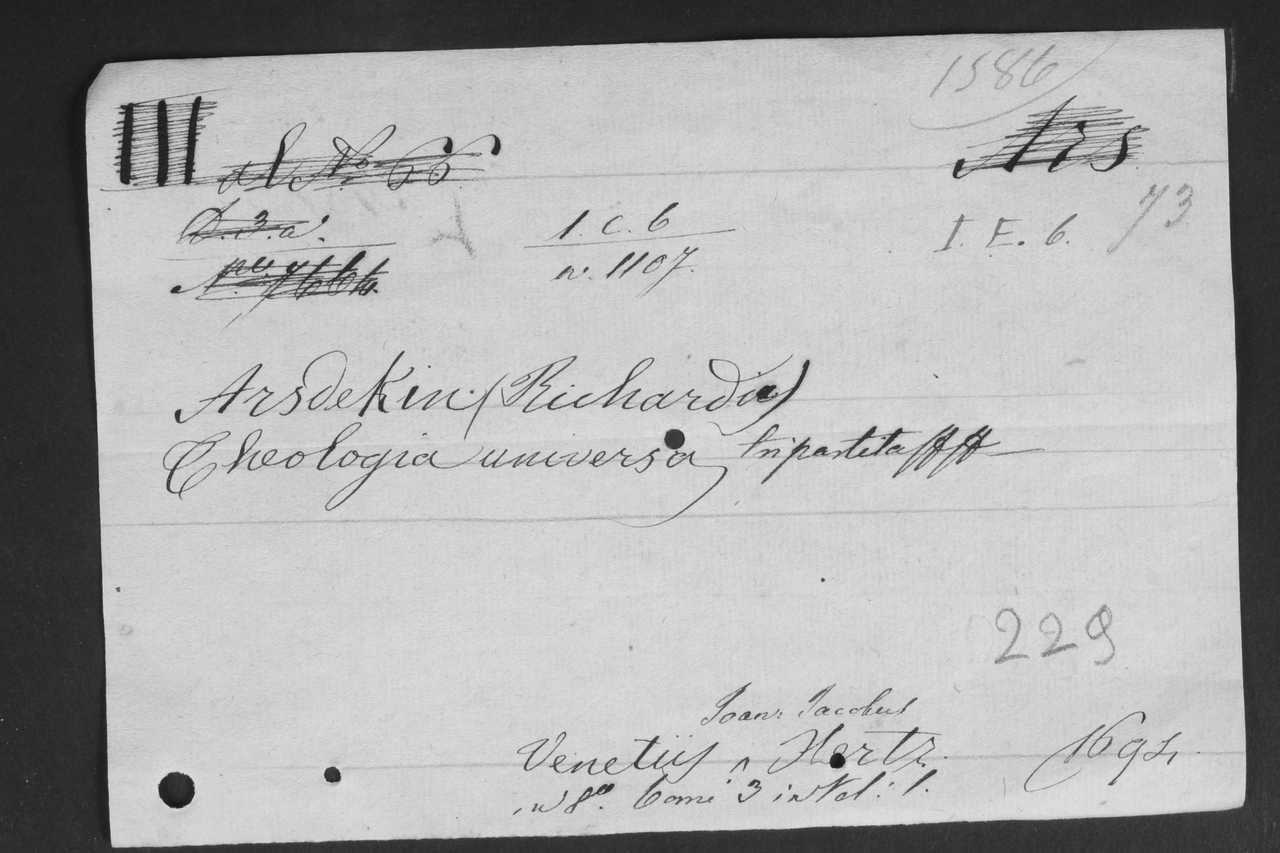 1586
III
al No. 66
Ars
D.3.a.
1.C.6
I.E.6.
73
n. 1107.
Arsdekin (Richardi)
Theologia universa, tripartita
229
Joan: Jacobus
Venetiis ^ Hertz. 1691
in 8o. Tomi 3 in Vol: 1.